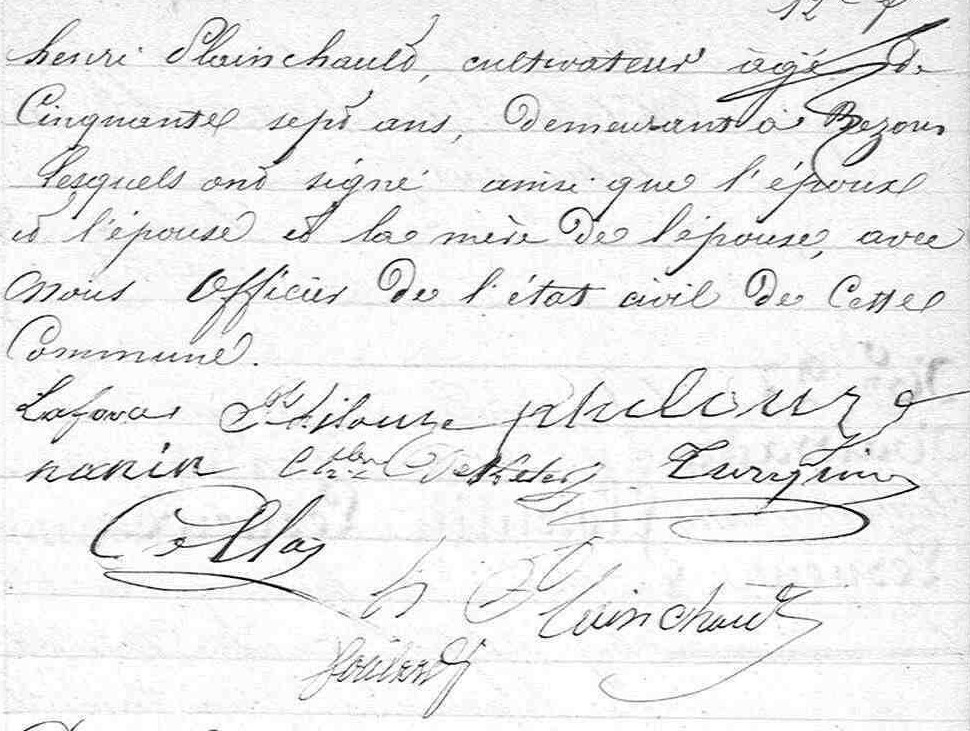 henri Plainchauld, cultivateur agé de
Cinquante sept ans, demeurant à Bezons
Lesquels ont signé ainsi que l'époux
et l'épouse et la mère de l'épouse, avec
nous Officier de l'état civil de Cette
Commune.
philouze
nanin Turquin
h Plainchauld